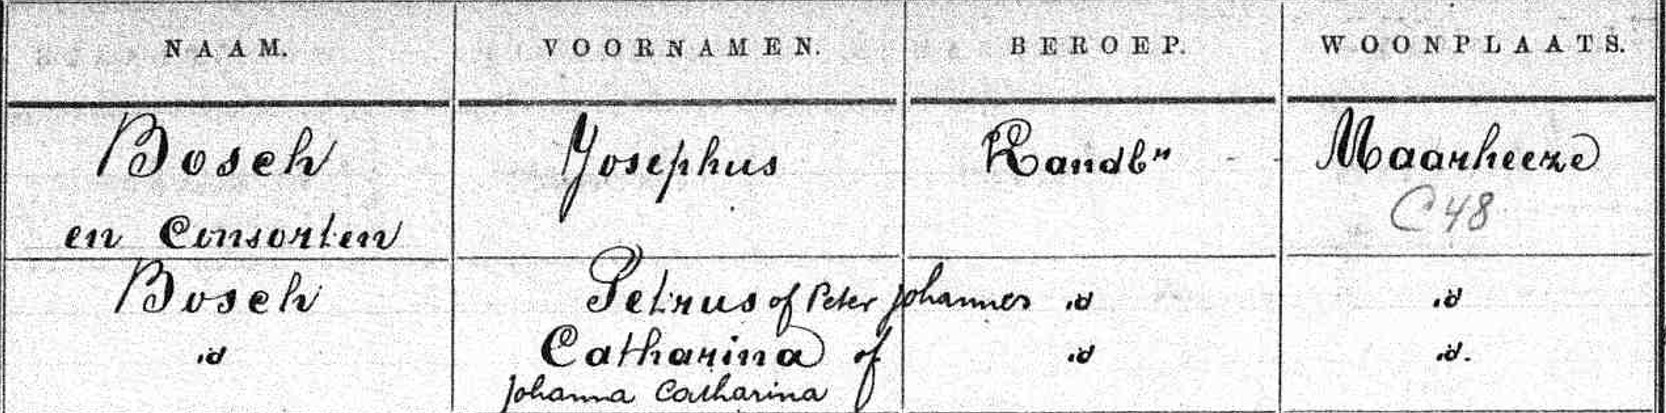 NAAM. VOORNAMEN. BEROEP. WOONPLAATS.
Bosch Josephus Landbr Maarheeze
en Consorten C 48
Bosch Petrus of Peter Johannes id id
id Catharina of id id.
Johanna Catharina